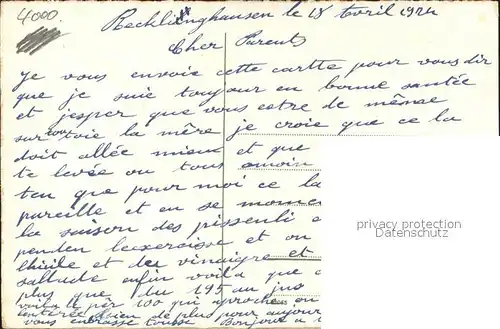 4000.
Recklinghausen le 18 Avril 1924
Cher Parents
Je vous envoie cette cartte pour vous dir
que je suic toujour en bonne santée
et jesper que vous estre de mênse
sur toie la mêre je croie que ce la
doit allée mieu et que
te levée ou tous amoin
ten que pour moi ce la
pareille et en se momen
la saison des pissenli e
penden lexercisse et on
lhuile et du vinaigre et
sallude enfin voila que
plus que du 195 au jus
voila le per 100 qui aproche on
rien de plus pour aujour
vous enbrasse tousse Bonjour a
privacy protection
Datenschutz